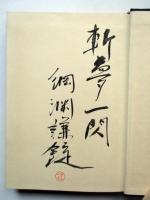 斬夢一閃
綱淵謙錠